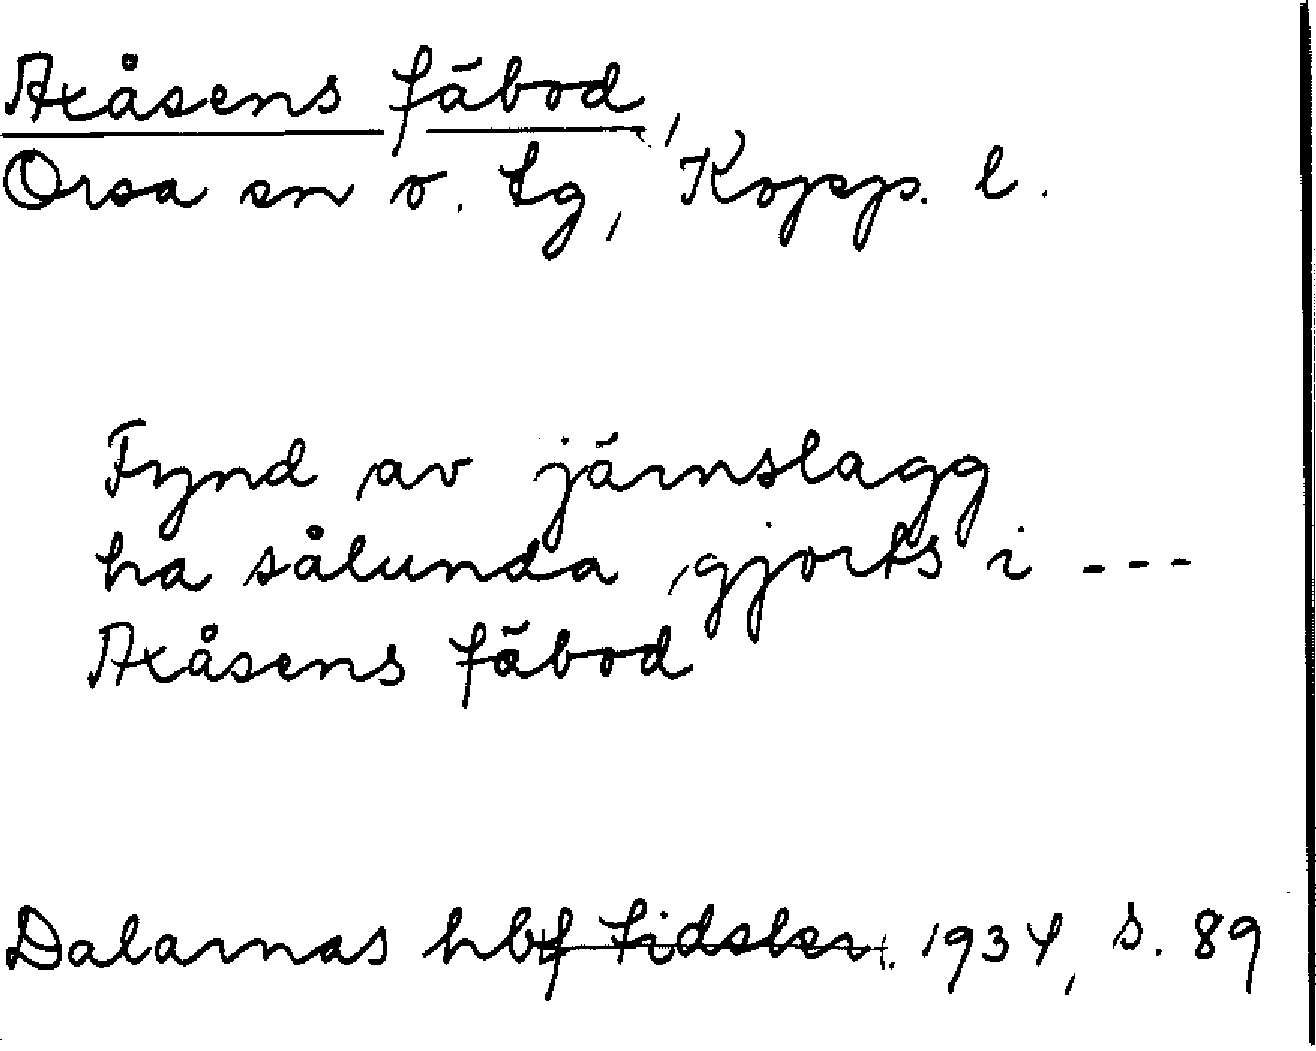 Axåsens fäbod,
Orsa sn o. tg, Kopp. l.
Fynd av järnslagg
ha sålunda gjorts i ---
Axåsens fäbod
Dalarnas hbf tidskr. 1934, s. 89